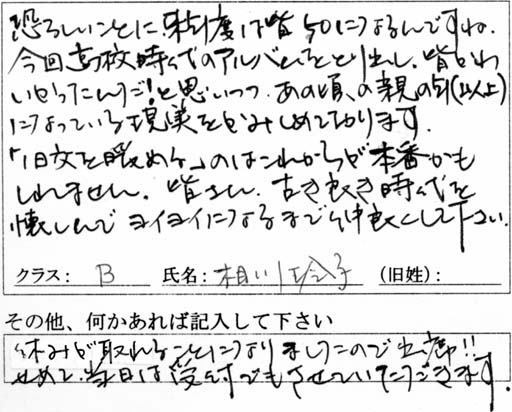 恐ろしいことに、来年度は皆50になるんですね。
今回高校時代のアルバムをとり出し、皆かわ
いかったんだ!と思いつつ、あの頃の親の年(以上)
になっている現実をかみしめております。
「旧交を暖める」のはこれからが本番かも
しれません。皆さん、古き良き時代を
懐しんでヨイヨイになるまで仲良くして下さい。
クラス: B 氏名: 相川玲子 (旧姓):
その他、何かあれば記入して下さい
休みが取れることになりましたので出席!!
せめて、当日は受付でもさせていただきます。